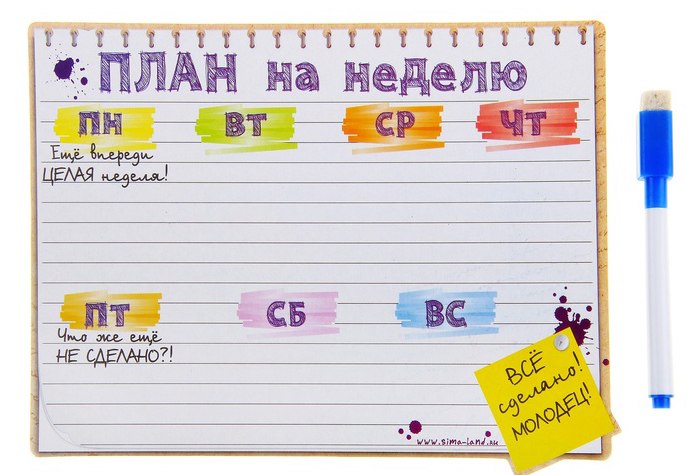 ПЛАН на неделю
ПН ВТ СР ЧТ
Ещё впереди
ЦЕЛАЯ неделя!
ПТ СБ ВС
Что же ещё
НЕ СДЕЛАНО?!
ВСЁ
сделано!
МОЛОДЕЦ!
www.sima-land.ru